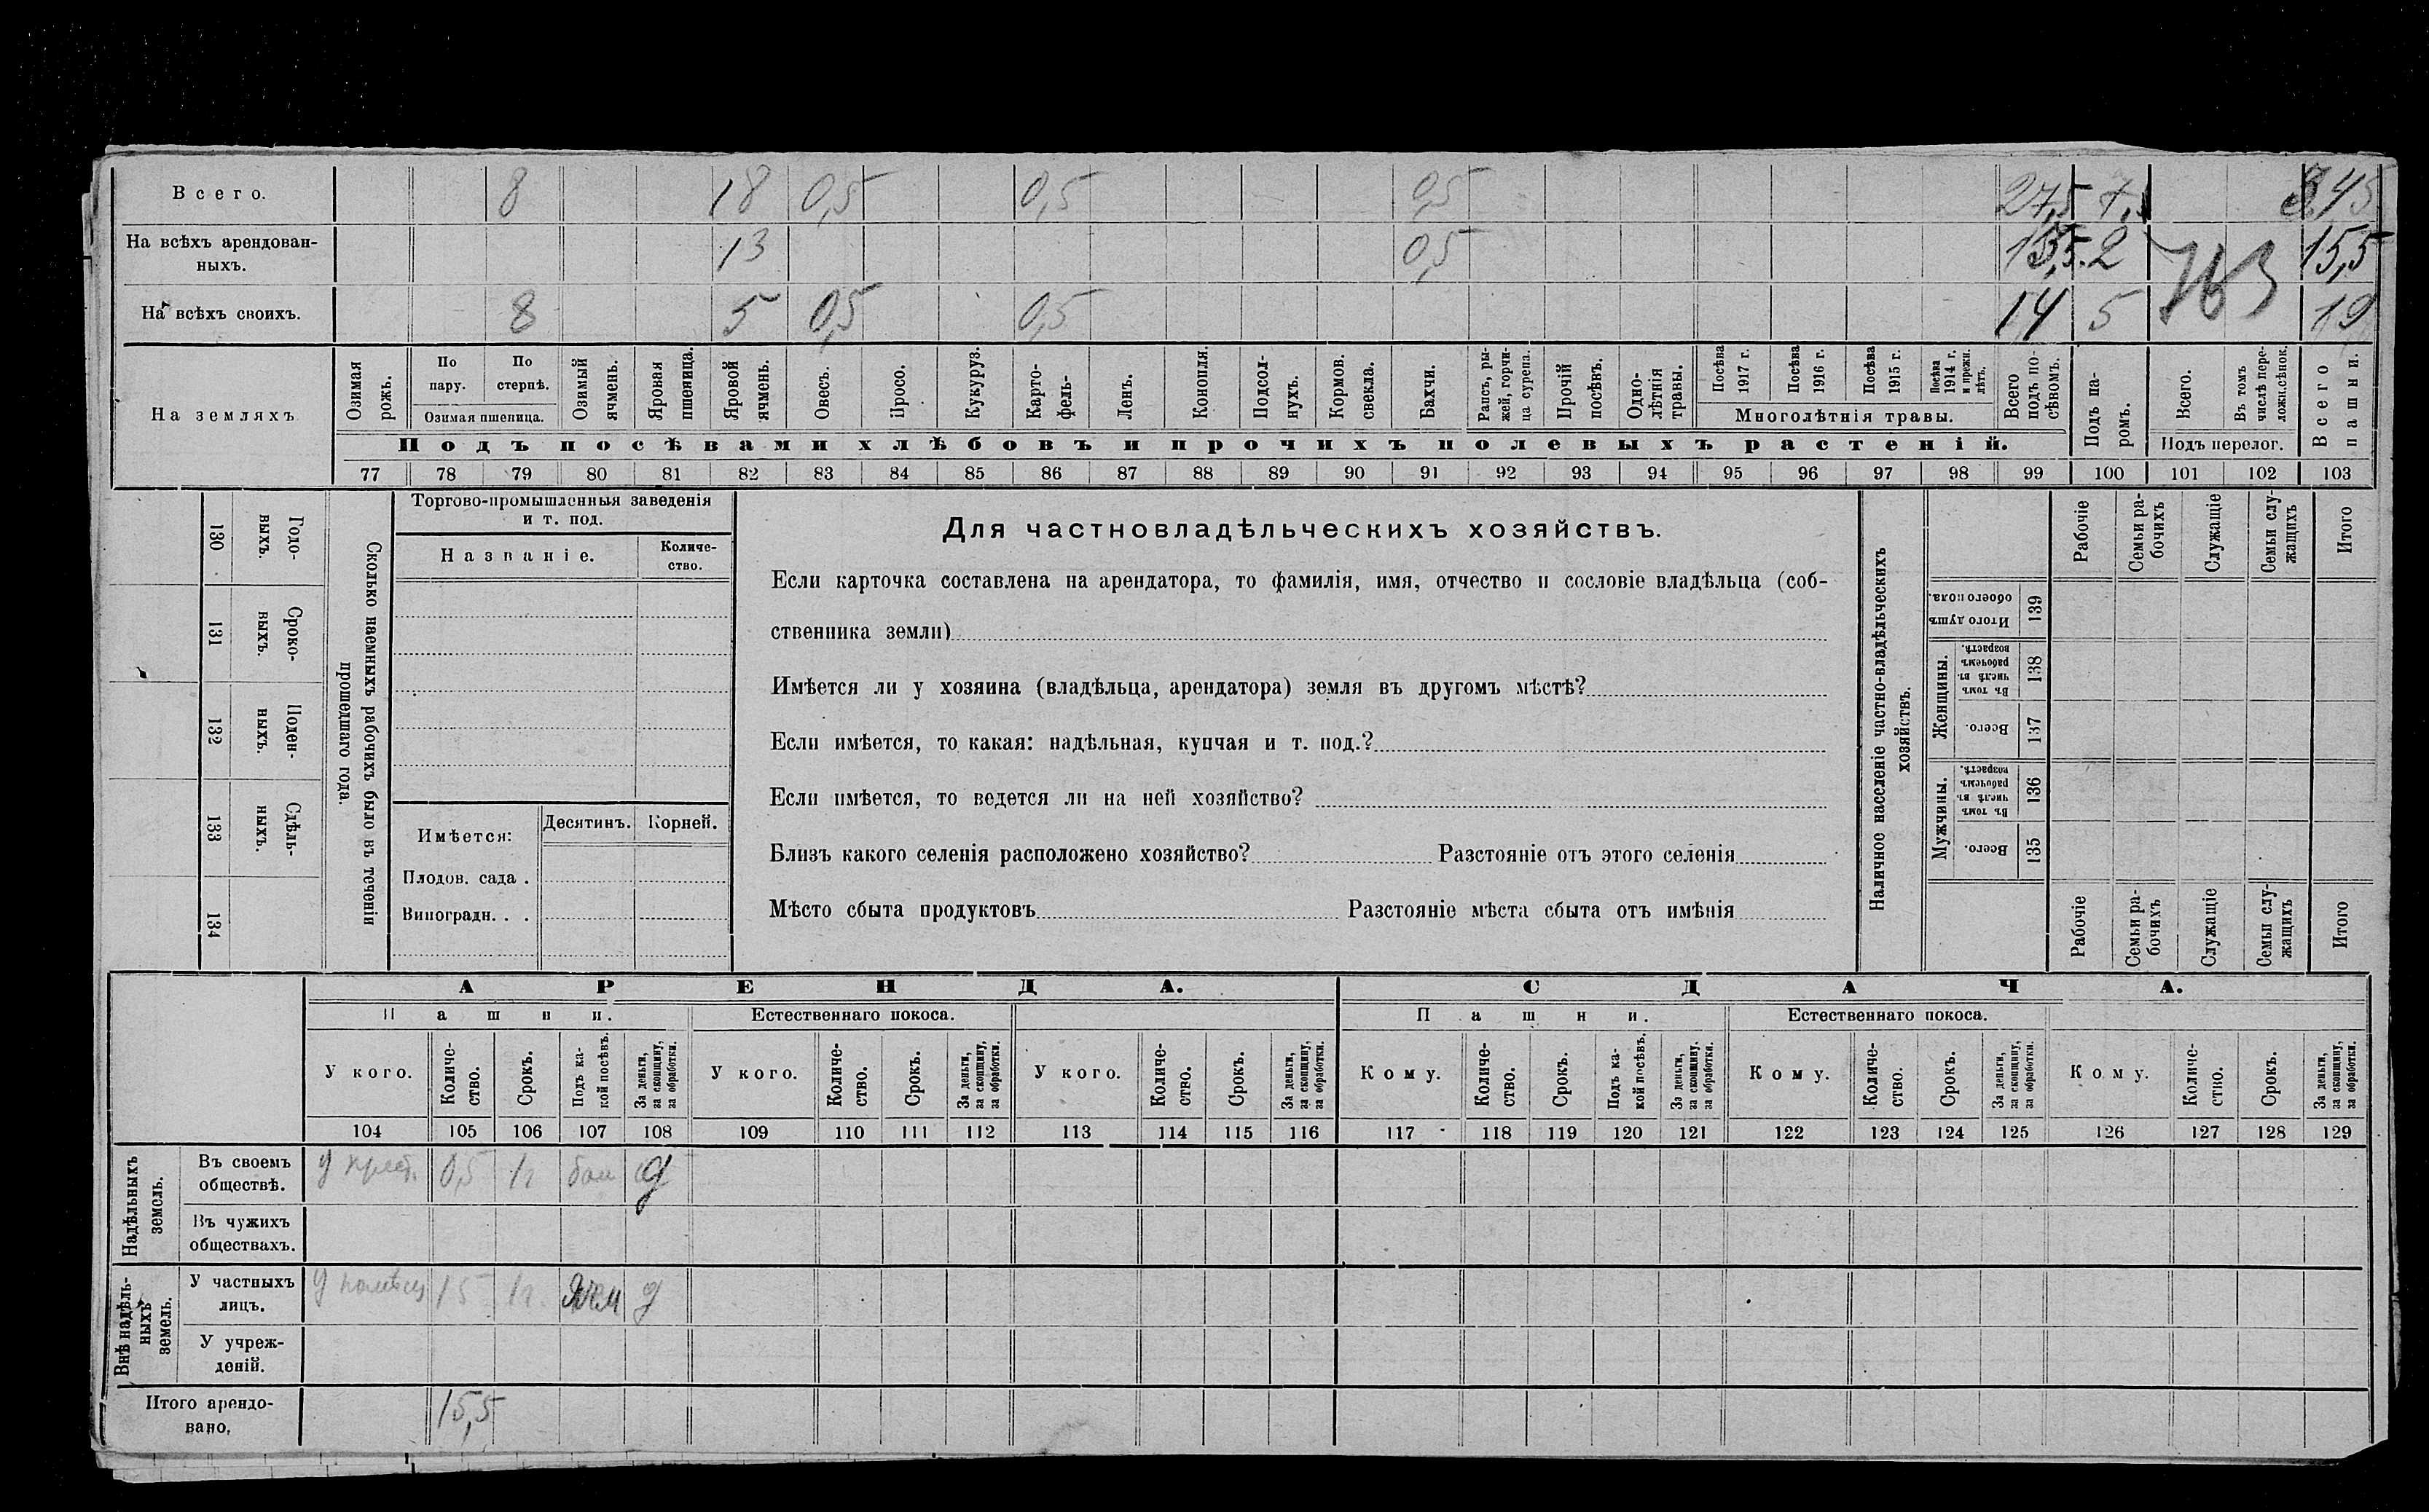 Всего. 8 18 0,5 0,5 0,5 27,5
На всѣхъ арендован-
ныхъ. 13 0,5 13,5 2 15,5
На всѣхъ своихъ. 8 5 0,5 0,5 14 5 19
На земляхъ
Озимая рожь.
По пару.
По стернѣ.
Озимая пшеница.
Озимый ячмень.
Яровая пшеница.
Яровой ячмень.
Овесъ.
Просо.
Кукуруз.
Карто-
фель-
Ленъ.
Конопля.
Подсол-
нухъ.
Кормов.
свекла.
Бахчи.
Рапсъ, ры-
жей, горчи-
ца сурепа.
Прочій посѣвъ.
Одно-
лѣтнія
травы.
Посѣва 1917 г.
Посѣва 1916 г.
Посѣва 1915 г.
Посѣва 1914 г. и прежн. лѣтъ.
Многолѣтнія травы.
Всего подъ по-
сѣвомъ.
Подъ па-
ромъ.
Всего.
Въ томъ числѣ пере-
ложн.сѣнок.
Подъ перелог.
Всего пашни.
Подъ посѣвами хлѣбовъ и прочихъ полевыхъ растеній.
77 78 79 80 81 82 83 84 85 86 87 88 89 90 91 92 93 94 95 96 97 98 99 100 101 102 103
Годо-
выхъ.
130
Сроко-
выхъ.
131
Поден-
ныхъ.
132
Сдѣль-
ныхъ.
133
134
Сколько наемныхъ рабочихъ было въ теченіи
прошедшаго года.
Торгово-промышленныя заведенія
и т. под.
Названіе.
Количе-
ство.
Имѣется:
Десятинъ. Корней.
Плодов. сада .
Виноградн. . .
Для частновладѣльческихъ хозяйствъ.
Если карточка составлена на арендатора, то фамилія, имя, отчество и сословіе владѣльца (соб-
ственника земли)
Имѣется ли у хозяина (владѣльца, арендатора) земля въ другомъ мѣстѣ?
Если имѣется, то какая: надѣльная, купчая и т. под.?
Если имѣется, то ведется ли на ней хозяйство?
Близъ какого селенія расположено хозяйство? Разстояніе отъ этого селенія
Мѣсто сбыта продуктовъ Разстояніе мѣста сбыта отъ имѣнія
Наличное населеніе частно-владѣльческихъ
хозяйствъ.
Рабочіе
Семьи ра-
бочихъ
Служащіе
Семьи слу-
жащихъ
Итого
Итого душъ
обоего пола.
139
Женщины.
Въ томъ
числѣ въ
рабочемъ
возрастѣ.
138
Всего.
137
Мужчины.
Въ томъ
числѣ въ
рабочемъ
возрастѣ.
136
Всего.
135
Рабочіе
Семьи ра-
бочихъ
Служащіе
Семьи слу-
жащихъ
Итого
АРЕНДА. СДАЧА.
Пашни. Естественнаго покоса. Пашни. Естественнаго покоса.
У кого.
Количе-
ство.
Срокъ.
Подъ ка-
кой посѣвъ.
За деньги,
за скопщину,
за обработки.
У кого.
Количе-
ство.
Срокъ.
За деньги,
за скопщину,
за обработки.
У кого.
Количе-
ство.
Срокъ.
За деньги,
за скопщину,
за обработки.
Кому.
Количе-
ство.
Срокъ.
Подъ ка-
кой посѣвъ.
За деньги,
за скопщину.
за обработки.
Кому.
Количе-
ство.
Срокъ.
За деньги,
за скопщину,
за обработки.
Кому.
Количе-
ство.
Срокъ.
За деньги,
за скопщину,
за обработки.
104 105 106 107 108 109 110 111 112 113 114 115 116 117 118 119 120 121 122 123 124 125 126 127 128 129
Надѣльныхъ
земель.
Въ своемъ
обществѣ. у крест. 0,5 1 г д
Въ чужихъ
обществахъ.
Внѣ надѣль-
ныхъ
земель.
У частныхъ
лицъ. 15 1 г. Ячм д
У учреж-
деній.
Итого арендо-
вано, 15,5